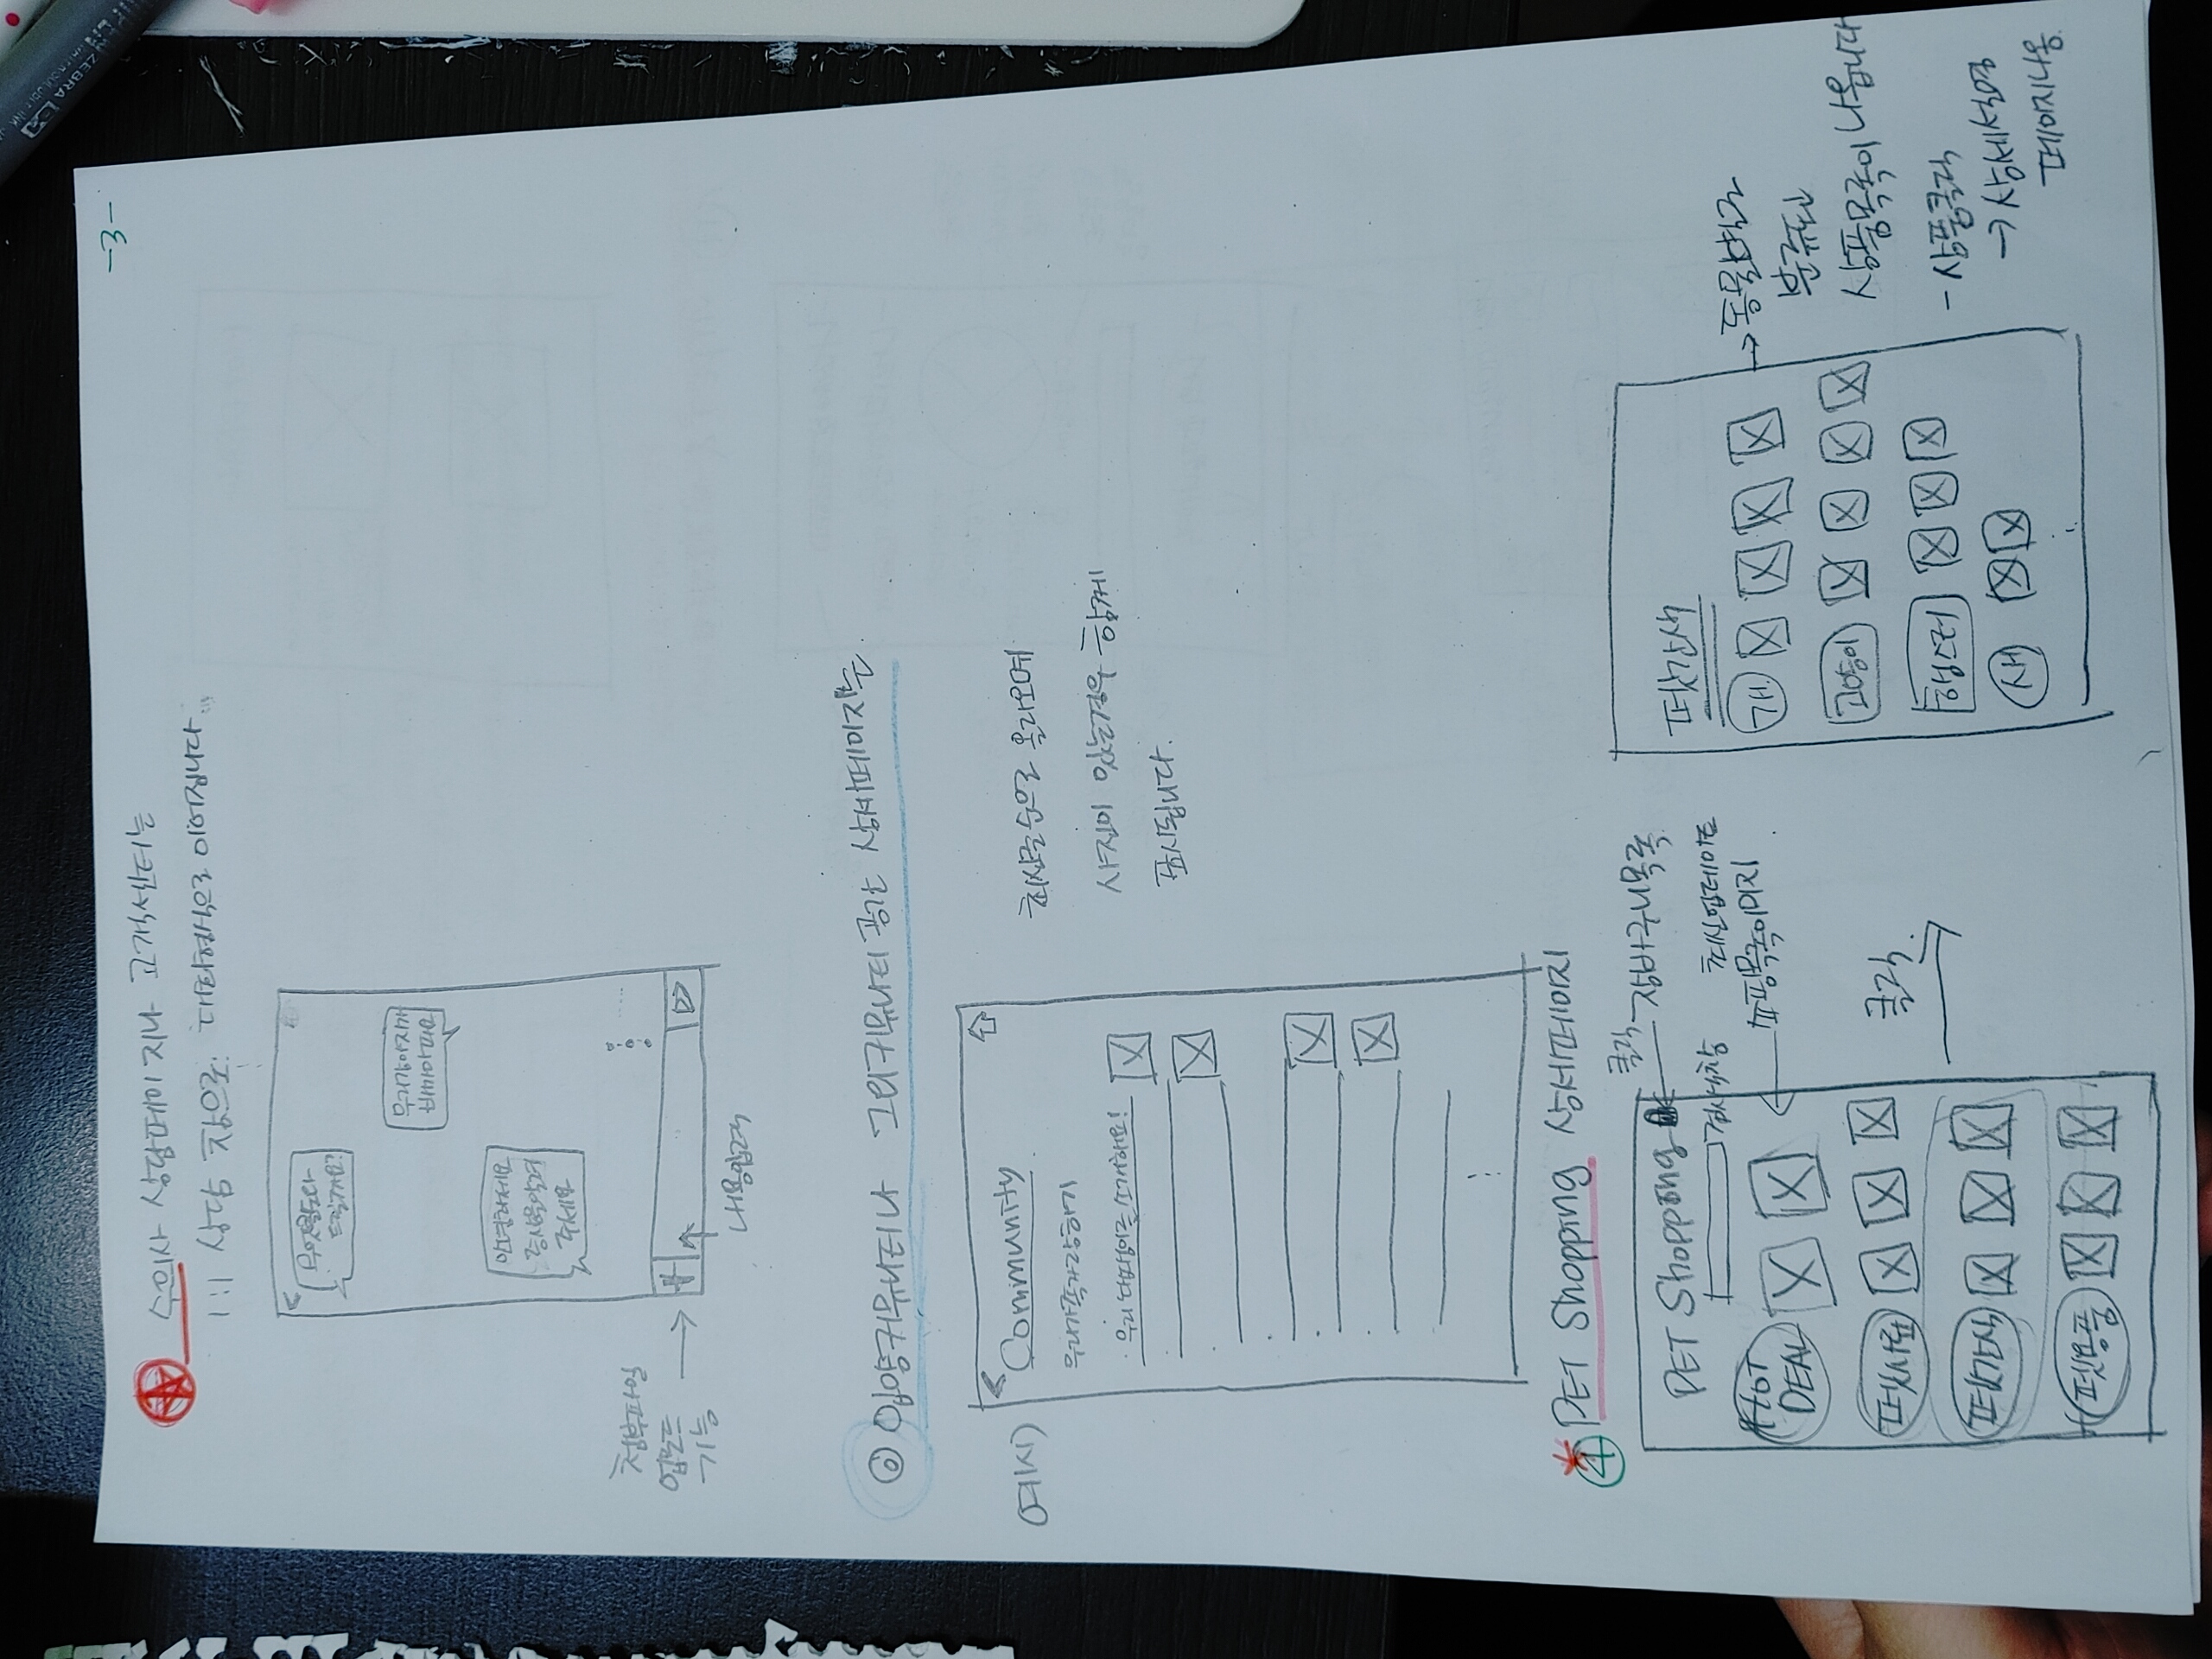 -3-
수의사 상담페이지나 고객센터는
1:1 상담 창으로 대화형식으로 이어집니다
<
무엇을도와
드릴까요?
우리강아지가
배가아파요
안녕하세요
증상을알려
주세요
첨부파일
업로드
기능
+
내용입력
◎ 입양커뮤니티나 그외커뮤니티 공간 상세페이지는
예시)
<
Community
우리가족자랑하기
· 우리 댕댕이를 소개해요!
최신글순으로 올라오며
사진이 있는경우 함께
표시됩니다.
* ④ PET Shopping 상세페이지
PET Shopping
클릭
장바구니목록
검색창
최신업데이트
쇼핑목록이미지
HOT
DEAL
펫사료
펫간식
펫용품
클릭
펫간식
개
고양이
햄스터
새
→ 동물별로
분류되고
상품목록이 나옵니다
- 상품클릭
→ 상세설명
페이지나옴
ZEBRA